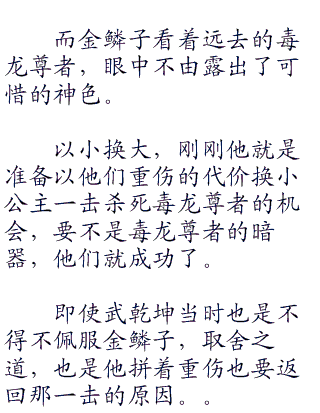 而金鳞子看着远去的毒
龙尊者，眼中不由露出了可
惜的神色。
以小换大，刚刚他就是
准备以他们重伤的代价换小
公主一击杀死毒龙尊者的机
会，要不是毒龙尊者的暗
器，他们就成功了。
即使武乾坤当时也是不
得不佩服金鳞子，取舍之
道，也是他拼着重伤也要返
回那一击的原因。。